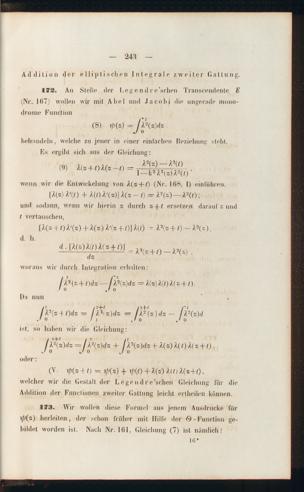 — 243 —
Addition der elliptischen Integrale zweiter Gattung.
172. An Stelle der Legendre'schen Transcendente E
(Nr. 167) wollen wir mit Abel und Jacobi die ungerade mono-
drome Function
(8) ψ(z) = ∫₀ᶻ λ²(z)dz
behandeln, welche zu jener in einer einfachen Beziehung steht.
Es ergibt sich aus der Gleichung:
(9) λ(z+t) λ(z−t) = (λ²(z) − λ²(t)) / (1−k²λ²(z)λ²(t)),
wenn wir die Entwickelung von λ(z+t) (Nr. 168, I) einführen.
[λ(z) λ'(t) + λ(t) λ'(z)] λ(z−t) = λ²(z) − λ²(t),
und sodann, wenn wir hierin z durch z+t ersetzen darauf z und
t vertauschen,
[λ(z+t) λ'(z) + λ(z) λ'(z+t)] λ(t) = λ²(z+t) − λ²(z),
d. h.
d . [λ(z) λ(t) λ(z+t)] / dz = λ²(z+t) − λ²(z),
woraus wir durch Integration erhalten:
∫₀ᶻ λ²(z+t)dz − ∫₀ᶻ λ²(z)dz = λ(z) λ(t) λ(z+t).
Da nun
ist, so haben wir die Gleichung:
oder:
(V) ψ(z+t) = ψ(z) + ψ(t) + λ(z) λ(t) λ(z+t),
welcher wir die Gestalt der Legendre'schen Gleichung für die
Addition der Functionen zweiter Gattung leicht ertheilen können.
173. Wir wollen diese Formel aus jenem Ausdrücke für
ψ(z) herleiten, der schon früher mit Hilfe der Θ-Function ge-
bildet worden ist. Nach Nr. 161, Gleichung (7) ist nämlich:
16*